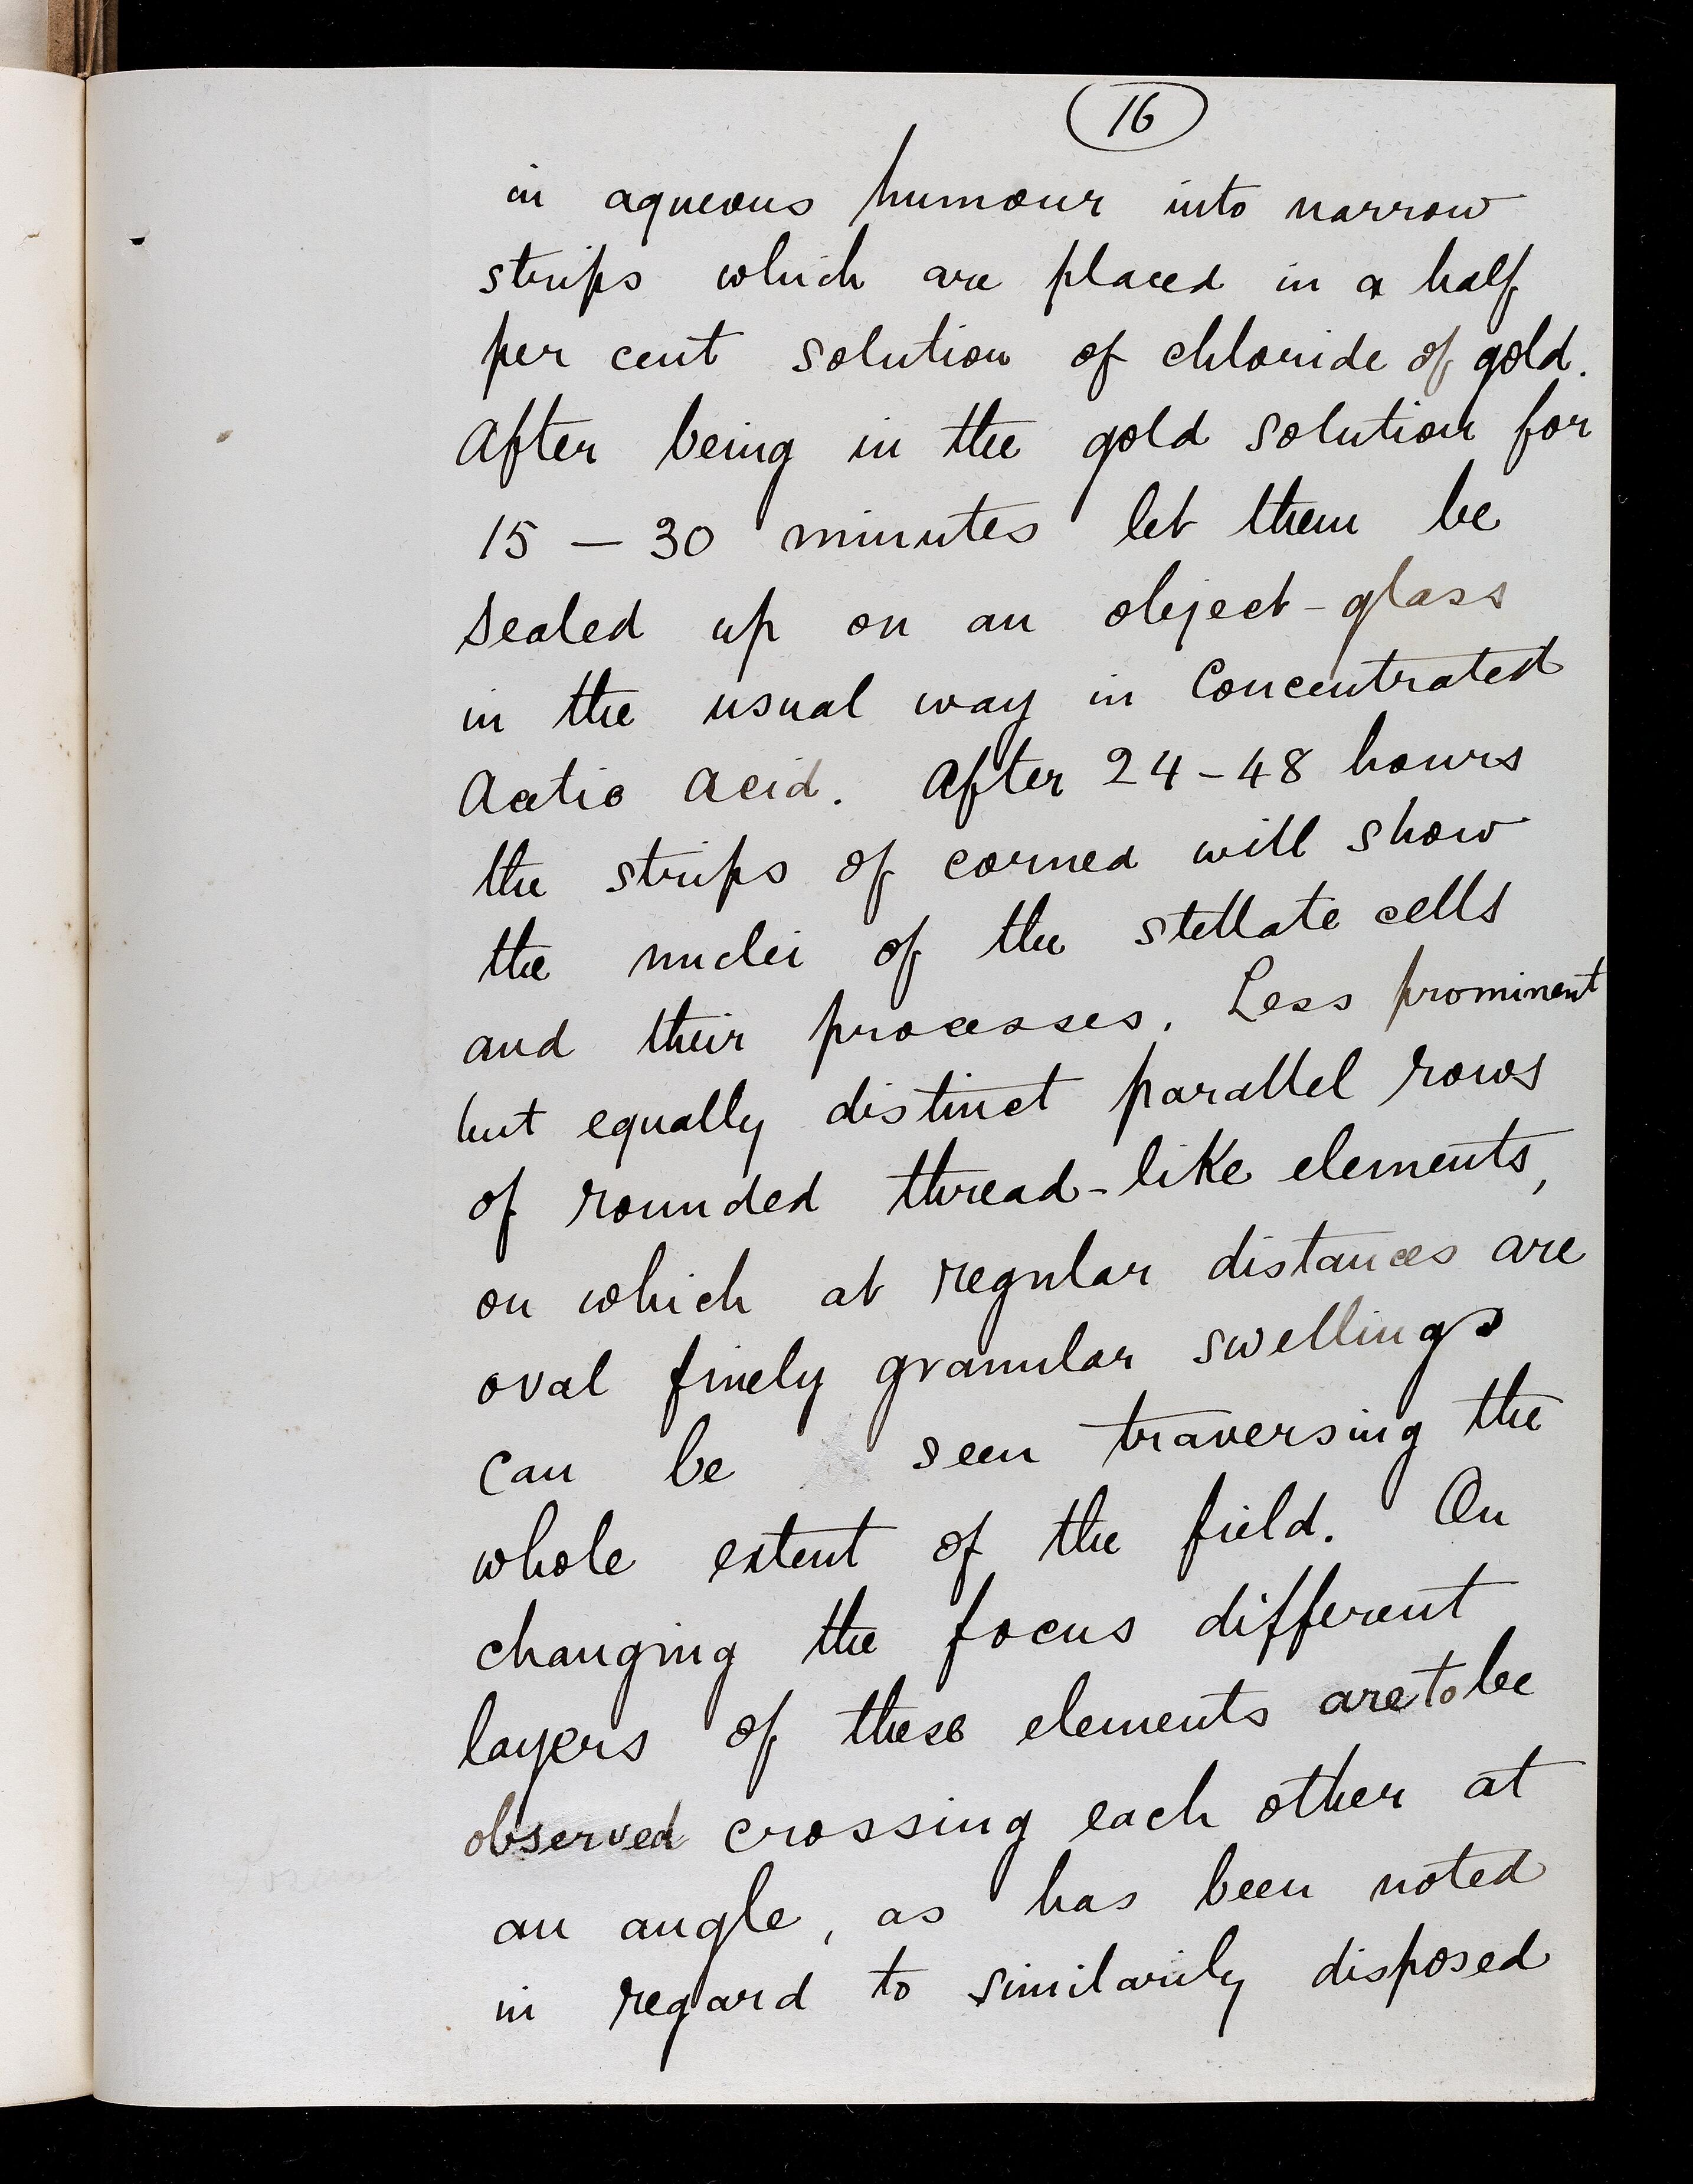 16
in aqueous humour into narrow
strips which are placed in a half
per cent solution of chloride of gold.
After being in the gold solution for
15 — 30 minutes let them be
sealed up on an object-glass
in the usual way in Concentrated
Acetic Acid. After 24-48 hours
the strips of cornea will show
the nuclei of the stellate cells
and their processes. Less prominent
but equally distinct parallel rows
of rounded thread-like elements,
on which at regular distances are
oval finely granular swellings
can be seen traversing the
whole extent of the field. On
changing the focus different
layers of these elements are to be
observed crossing each other at
an angle, as has been noted
in regard to similarily disposed